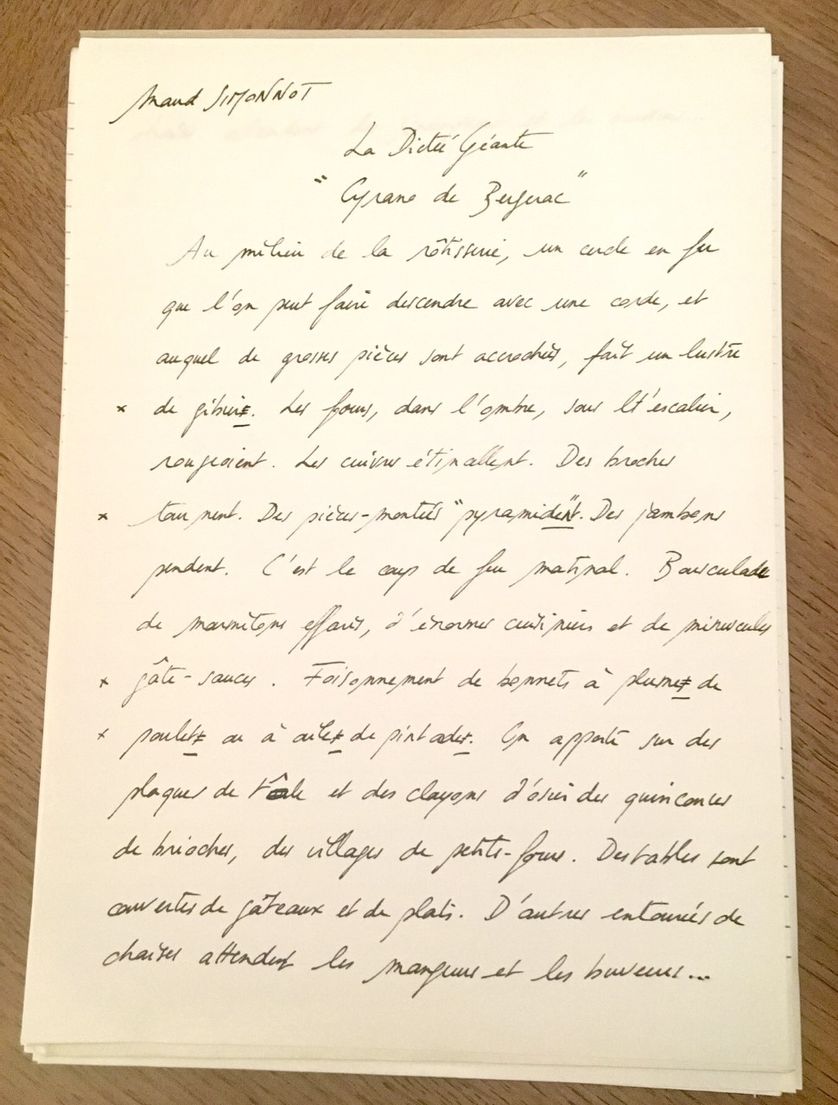 Maud SIMONNOT
La Dictée Géante
"Cyrano de Bergerac"
Au milieu de la rôtisserie, un cercle en fer
que l'on peut faire descendre avec une corde, et
auquel de grosses pièces sont accrochées, fait un lustre
x de gibiers. Les fours, dans l'ombre, sous l'escalier,
rougeoient. Les cuivres étincellent. Des broches
x tournent. Des pièces-montées "pyramident". Des jambons
pendent. C'est le coup de feu matinal. Bousculade
de marmitons effarés, d'énormes cuisiniers et de minuscules
x gâte-sauces. Foisonnement de bonnets à plumes de
x poulets ou à ailes de pintades. On apporte sur des
plaques de tôle et des clayons d'osier des quinconces
de brioches, des villages de petits-fours. Des tables sont
couvertes de gâteaux et de plats. D'autres entourées de
chaises attendent les mangeurs et les buveurs...